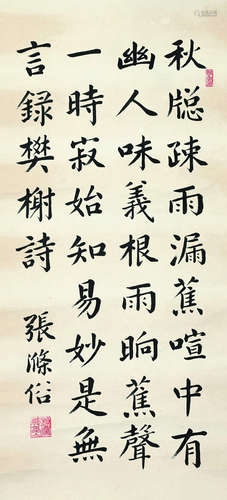 秋牕疎雨漏蕉喧中有
幽人味義根雨晌蕉聲
一時寂始知易妙是無
言録樊榭詩
張滌俗